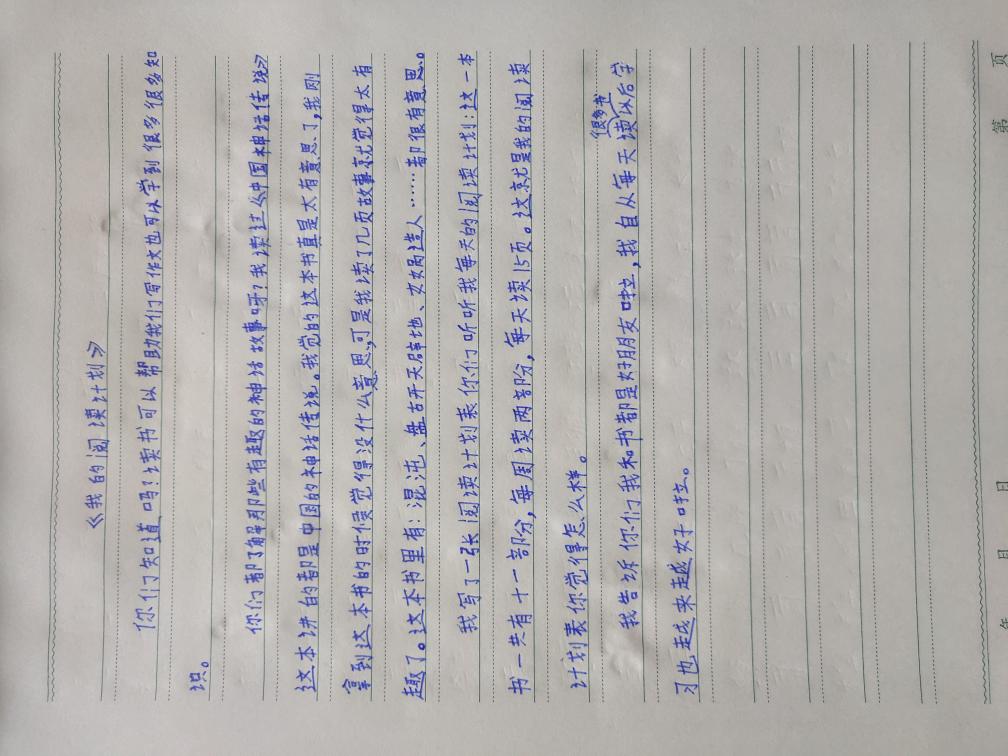 《我的阅读计划》
你们知道吗？读书可以帮助我们写作文也可以学到很多很多知
识。
你们都了解那些有趣的神话故事呀？我读过《中国神话传说》
这本讲的都是中国的神话传说。我觉的这本书真是太有意思了，我刚
拿到这本书的时侯觉得没什么意思，可是我读了几页故事就觉得太有
趣了。这本书里有：混沌、盘古开天辟地、女娲造人……都很有意思。
我写了一张阅读计划表你们听听我每天的阅读计划：这一本
书一共有十一部分，每周读两部分，每天读15页。这就是我的阅读
计划表你觉得怎么样。
我告诉你们我和书都是好朋友啦，我自从每天读很多书以后学
习也越来越好了啦。
年 月 日 第 页